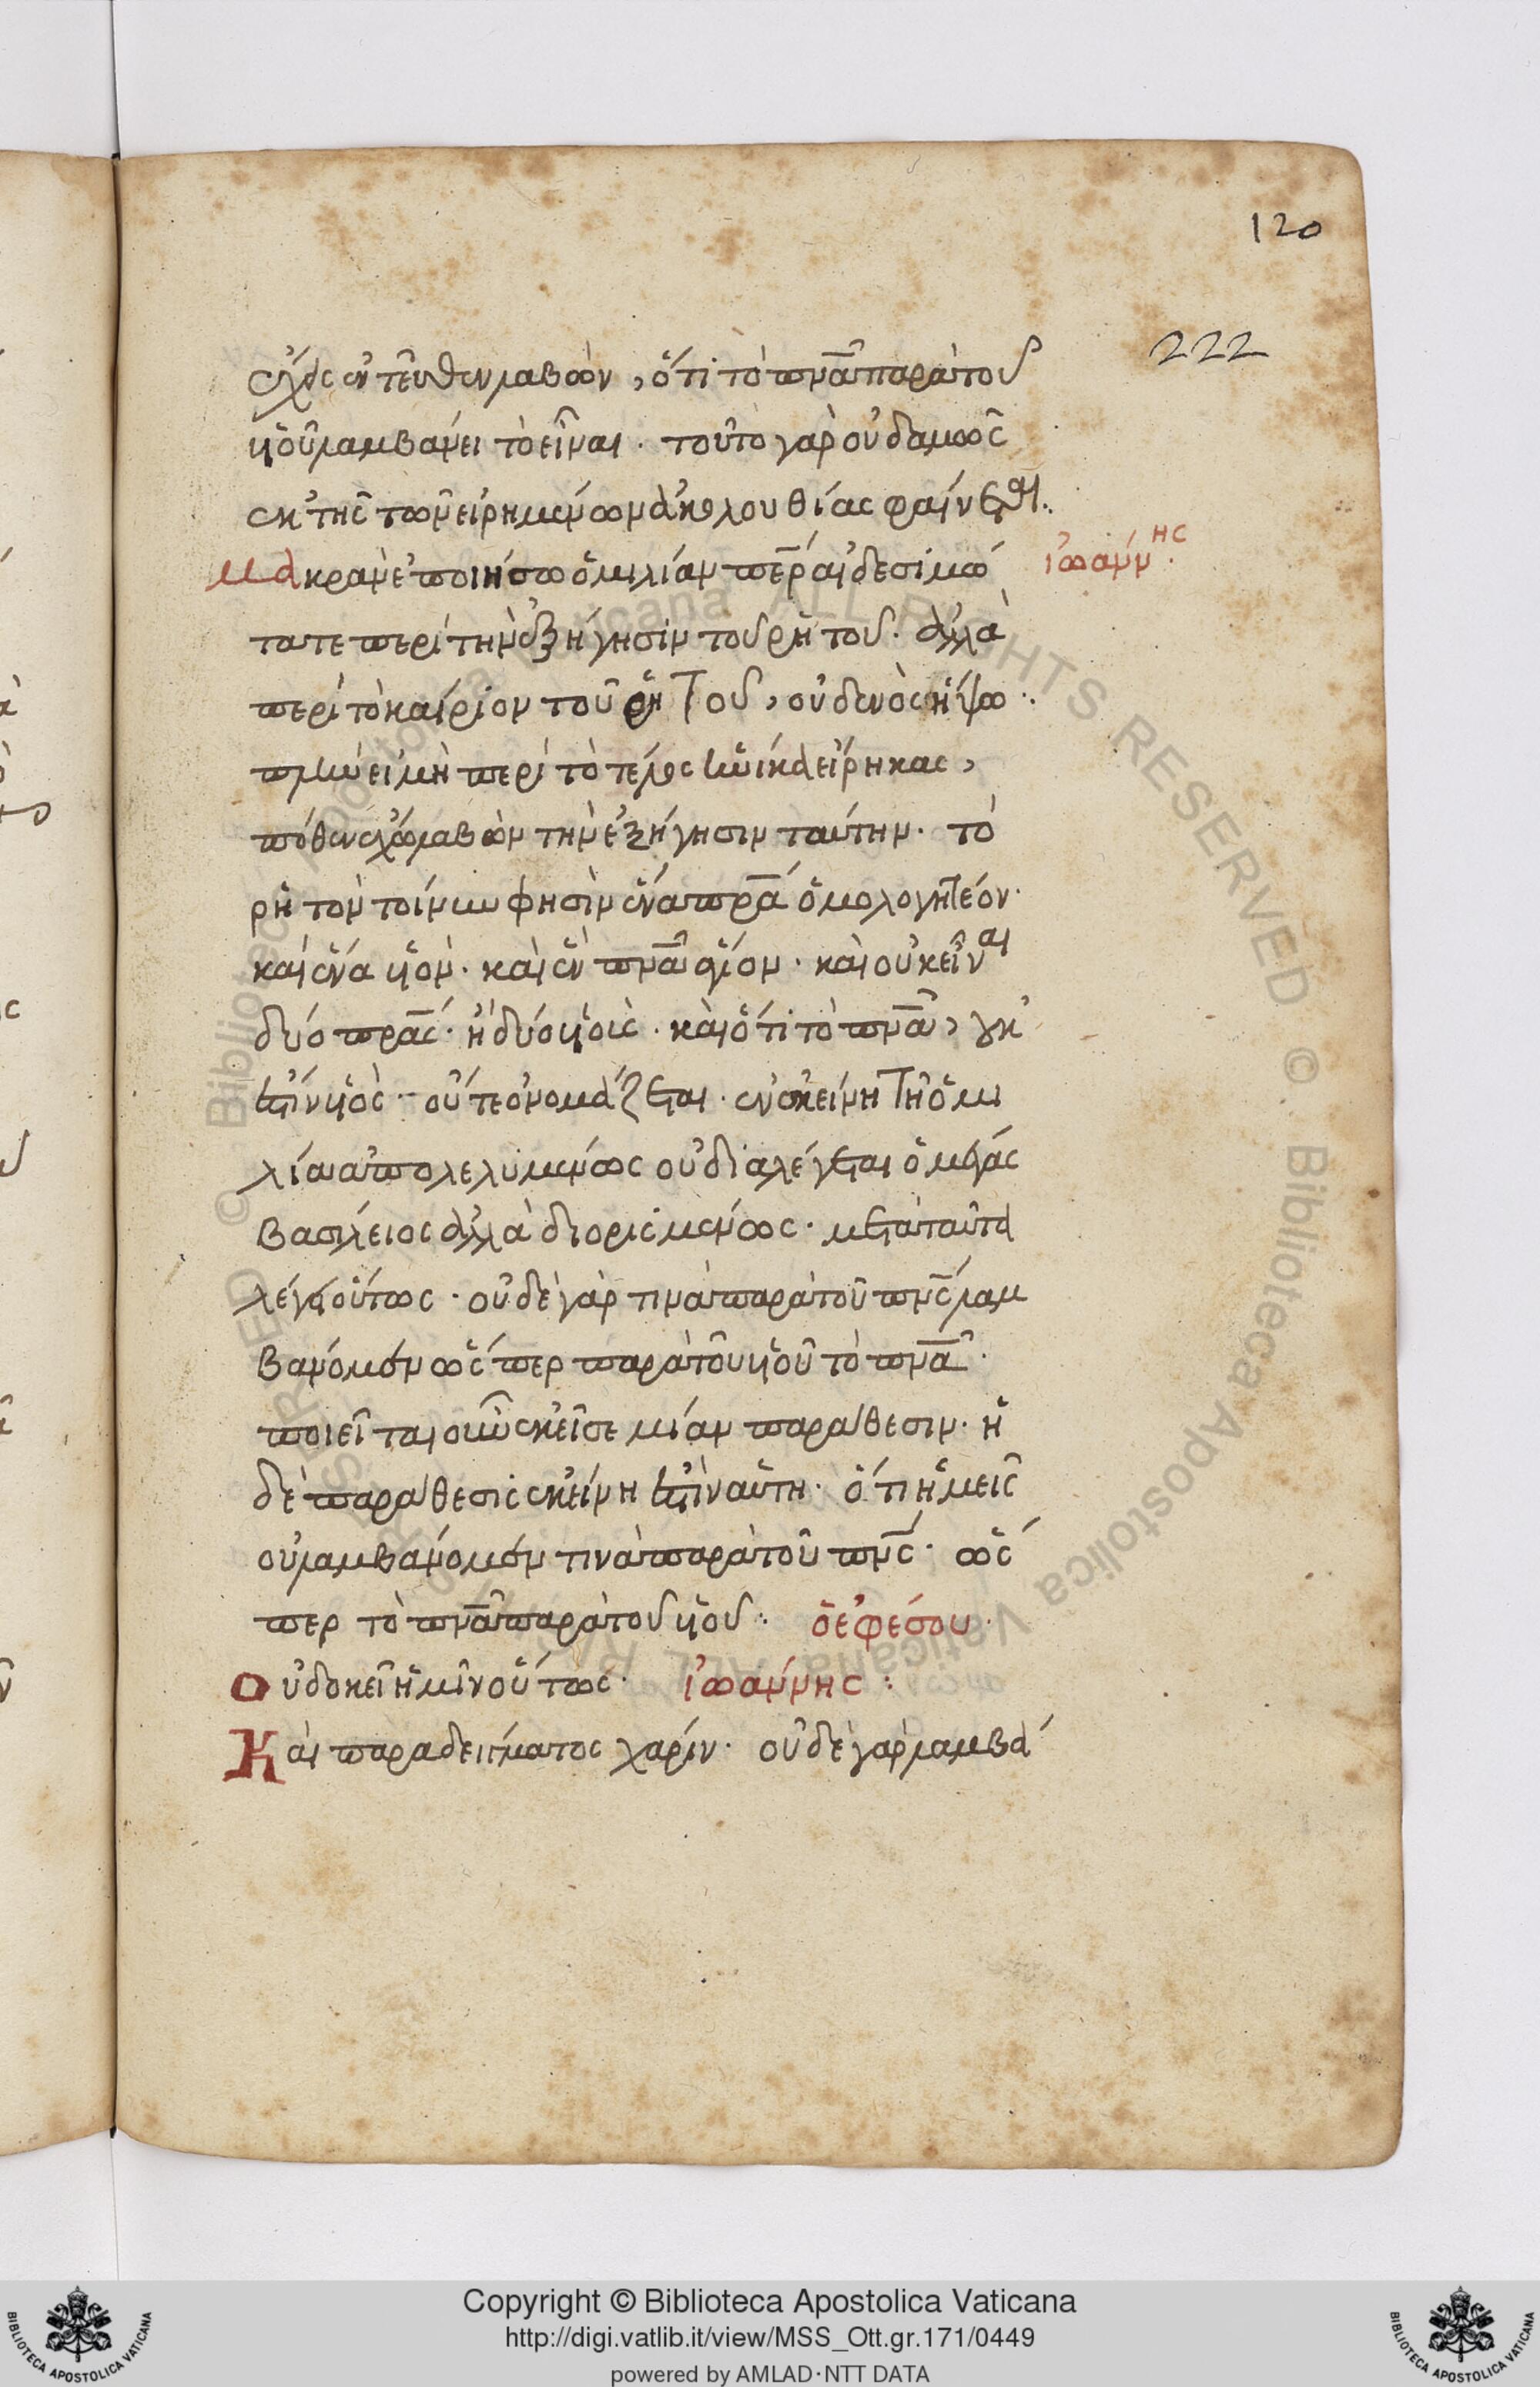 120
222
ἔχεις ἐντεῦθεν λαβὼν, ὅτι τὸ πνᾶ παρὰ τοῦ
υἱοῦ λαμβάνει τὸ εἶναι. τοῦτο γὰρ οὐδαμῶς
ἐκ τῆς τῶν εἰρημένων ἀκολουθίας φαίνεται.
μακρὰν ἐποιήσω ὁμιλίαν πὲρ αἰδεσιμώ
ἰωάννης.
τατε περὶ τὴν ἐξήγησιν τοῦ ρητοῦ. ἀλλὰ
περὶ τὸ καίριον τοῦ ρητοῦ, οὐδενὸς ἥψω.
πλὴν εἰ μὴ περὶ τὸ τέλος ἡνίκα εἴρηκας,
πόθεν ἔχω λαβὼν τὴν ἐξήγησιν ταύτην. τὸ
ρητὸν τοίνυν φησὶν ἕνα πρᾶ ὁμολογητέον.
καὶ ἕνα υἱὸν. καὶ ἓν πνᾶ ἅγιον. καὶ οὐκ εἶναι
δύο πρᾶς. ἢ δύο υἱοὺς. καὶ ὅτι τὸ πνᾶ, οὐκ
ἔστιν υἱὸς. οὔτε ὀνομάζεται. ἐν ἐκείνη τῆ ὁμι
λία ἀπολελυμένως οὐ διαλέγεται ὁ μέγας
βασίλειος ἀλλὰ διορισμένως. μετὰ ταῦτα
λέγει οὕτως. οὐδὲ γὰρ τινὰ παρὰ τοῦ πνς λαμ
βάνομεν ὥσπερ παρὰ τοῦ υἱοῦ τὸ πνᾶ.
ποιεῖται οὖν ἐκεῖσε μίαν παράθεσιν. ἡ
δὲ παράθεσις ἐκείνη ἔστιν αὕτη. ὅτι ἡμεῖς
οὐ λαμβάνομέν τινα παρὰ τοῦ πνς. ὥς
περ τὸ πνᾶ παρὰ τοῦ υἱοῦ: ὁ ἐφέσου.
οὐ δοκεῖ ἡμῖν οὕτως. ἰωάννης:
Καὶ παραδείγματος χάριν. οὐδὲ γὰρ λαμβά
Copyright © Biblioteca Apostolica Vaticana
http://digi.vatlib.it/view/MSS_Ott.gr.171/0449
powered by AMLAD·NTT DATA
BIBLIOTECA APOSTOLICA VATICANA
BIBLIOTECA APOSTOLICA VATICANA